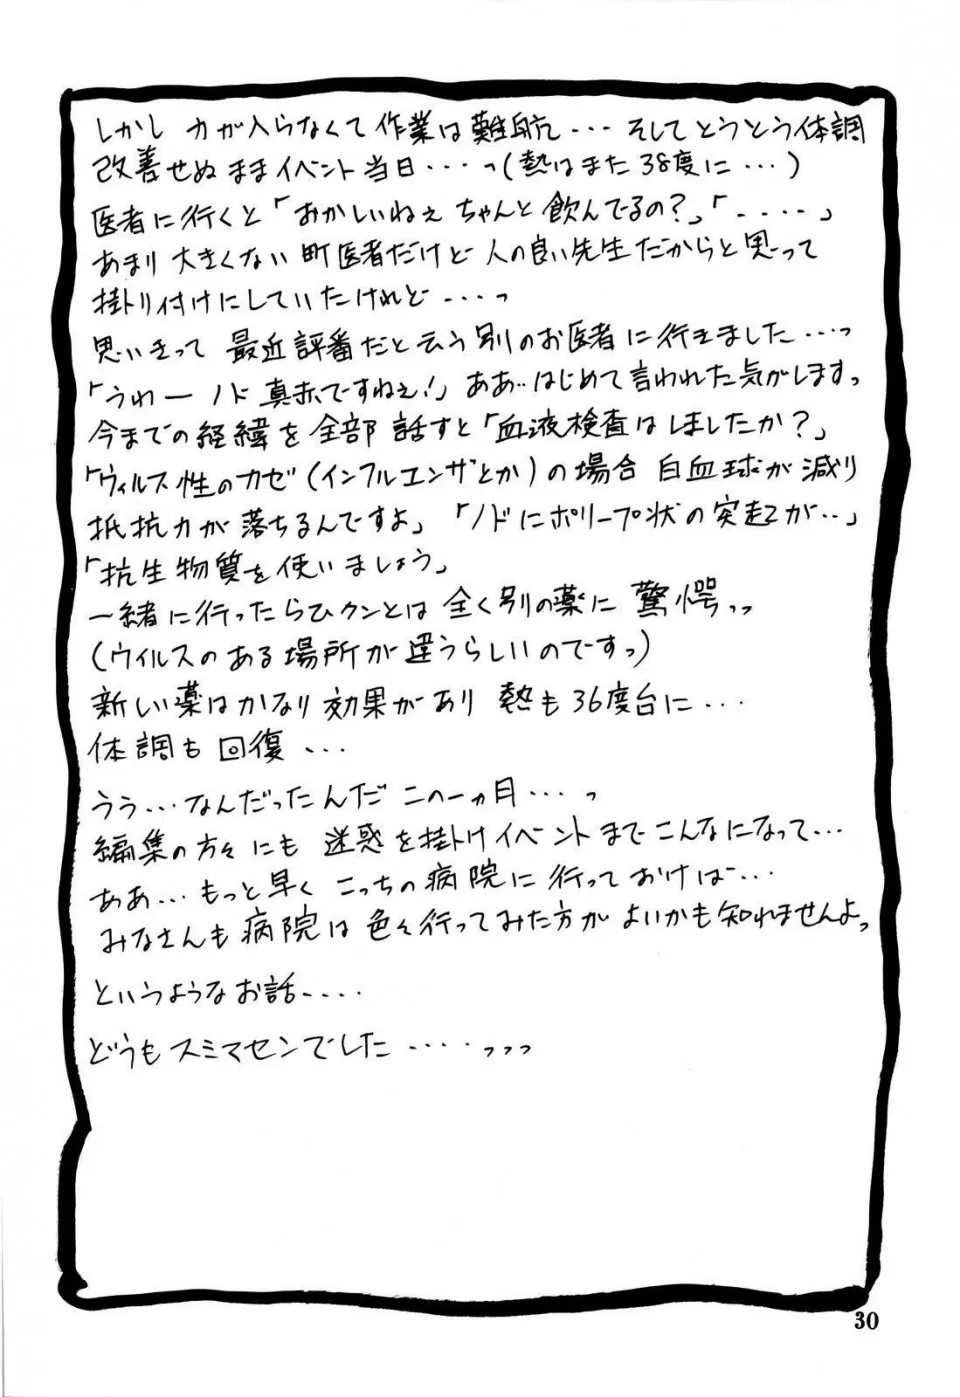 しかし 力が入らなくて作業は難航... そしてとうとう体調
改善せぬままイベント当日...っ(熱はまた38度に...)
医者に行くと「おかしいねぇ ちゃんと飲んでるの?」「.....」
あまり大きくない町医者だけど 人の良い先生だからと思って
掛り付けにしていたけれど....っ
思いきって 最近評番だと云う別のお医者に行きました....っ
「うわー ノド真赤ですねぇ!」ああ..はじめて言われた気がしますっ
今までの経緯を全部話すと「血液検査はしましたか?」
「ウィルス性のカゼ(インフルエンザとか)の場合 白血球が減り
抵抗力が落ちるんですよ」「ノドにポリープ状の突起が..」
「抗生物質を使いましょう」
一緒に行ったらひクンとは全く別の薬に驚愕っっ
(ウイルスのある場所が違うらしいのですっ)
新しい薬はかなり効果があり 熱も36度台に...
体調も回復...
うう...なんだったんだ この一ヵ月....っ
編集の方々にも 迷惑を掛けイベントまでこんなになって...
ああ...もっと早く こっちの病院に行っておけば....
みなさんも病院は色々行ってみた方がよいかも知れませんよっ
というようなお話....
どうもスミマセンでした.....っっっ
30